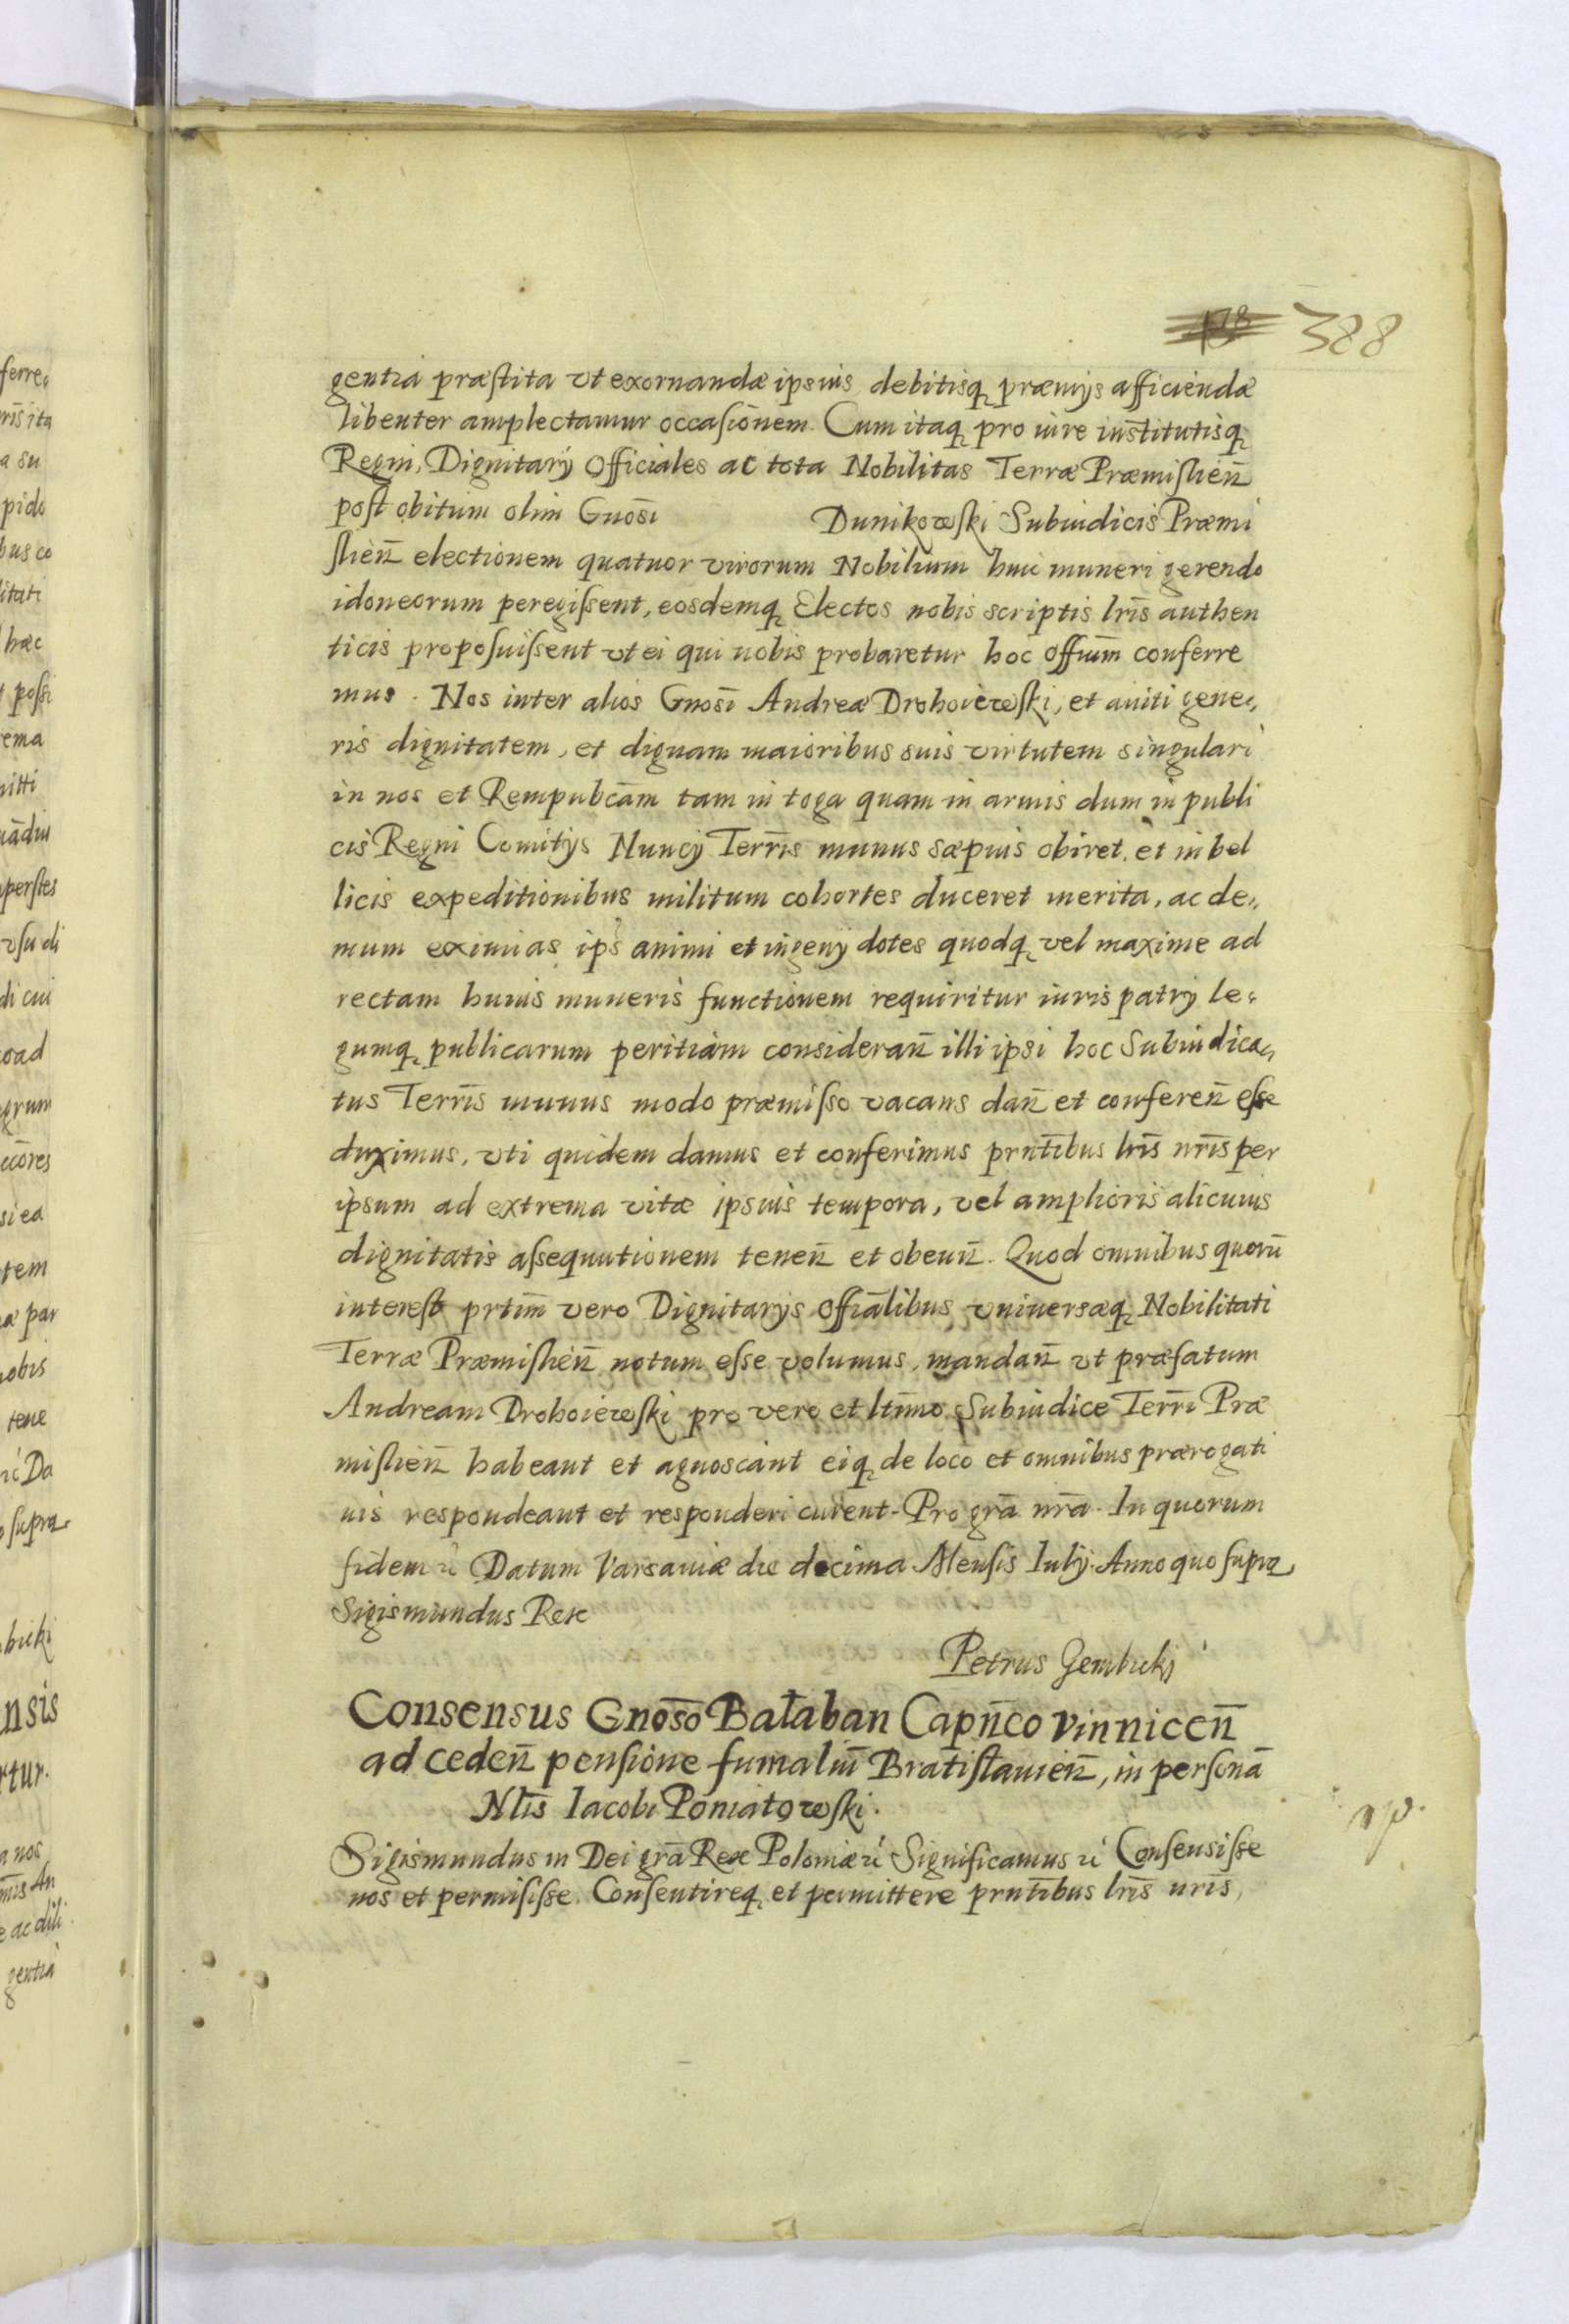 388
gentia præstita vt exornandæ ipsius debitisq præmijs afficiendæ
libenter amplectamur occasionem. Cum itaq pro iure institutisq
Regni, Dignitarij Officiales ac tota Nobilitas Terræ Præmislien̄
post obitum olim Gnōsi Dunikowski Subiudicis Præmi
slien̄ electionem quatuor virorum Nobilium huic muneri gerendo
idoneorum peregissent, eosdemq Electos nobis scriptis lrīs authen
ticis proposuissent vt ei qui nobis probaretur hoc offium̄ conferre
mus. Nos inter alios Gnōsi Andreæ Drohoiewski, et auiti gene„
ris dignitatem, et dignam maioribus suis virtutem singulari
in nos et Rempubcām tam in toga quam in armis dum in publi
cis Regni Comitijs Nuncij Terrīs munus sæpius obiret, et in bel
licis expeditionibus militum cohortes duceret merita, ac de„
mum eximias ips̄ animi et ingenij dotes quodq vel maxime ad
rectam huius muneris functionem requiritur iuris patrij le„
gumq publicarum peritiam consideran̄ illi ipsi hoc Subiudica„
tus Terrīs munus modo præmisso vacans dan̄ et conferen̄ esse
duximus, vti quidem damus et conferimus prntībus lrīs nrīs per
ipsum ad extrema vitæ ipsius tempora, vel amplioris alicuius
dignitatis assequutionem tenen̄ et obeun̄. Quod omnibus quorū
interest prtīm vero Dignitarijs offiālibus vniuersæq Nobilitati
Terræ Præmislien̄ notum esse volumus, mandan̄ vt præfatum
Andream Drohoiewski pro vero et ltīmo Subiudice Terrī Præ
mislien̄ habeant et agnoscant eiq de loco et omnibus prærogati
uis respondeant et responderi curent. Pro grā nrā. In quorum
fidem Datum Varsauiæ die decima Mensis Iulij. Anno quo supra
Sigismundus Rex
Petrus Gembicki
Consensus Gnōso Bałaban Capn̄eo Vinnicen̄
ad ceden̄ pensione fumaliū Bratislauien̄, in personā
Nlīs Iacobi Poniatowski.
Sigismundus III Dei grā Rex Poloniæ Significamus Consensisse
nos et permisisse. Consentireq et permittere prntībus lrīs nrīs,